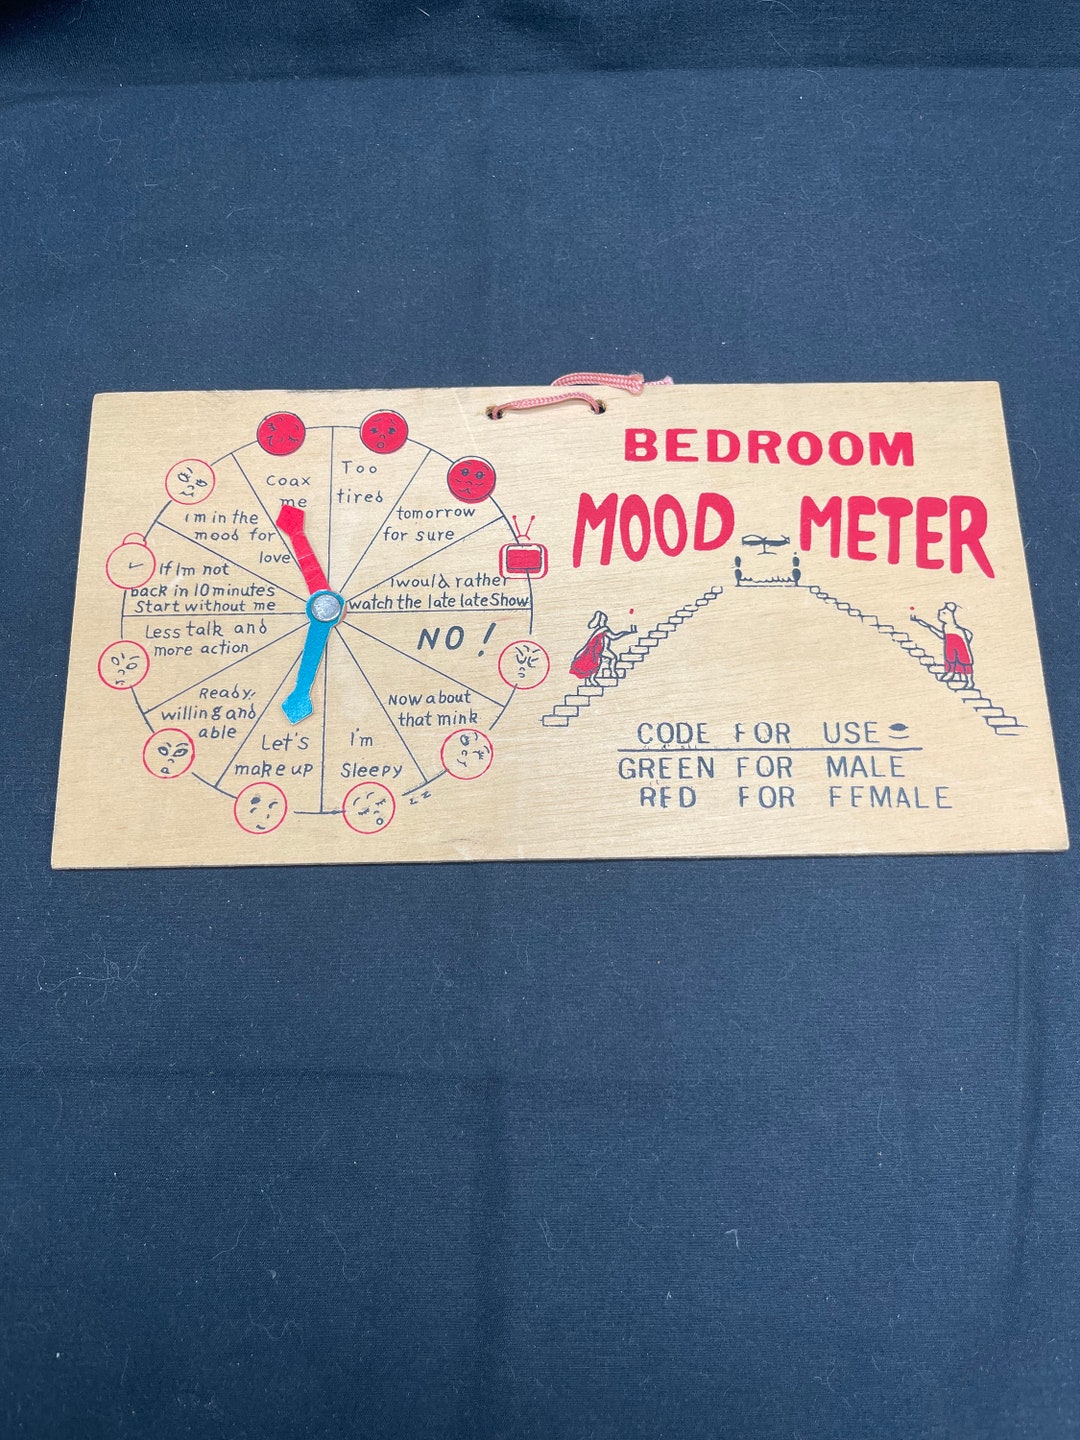 BEDROOM
MOOD METER
coax
me
Too
tired
tomorrow
for sure
I would rather
watch the late late Show
NO!
Now about
that mink
I'm
Sleepy
zz
Let's
make up
Ready,
willing and
able
Less talk and
more action
If Im not
back in 10 minutes
Start without me
I m in the
mood for
love
CODE FOR USE
GREEN FOR MALE
RED FOR FEMALE